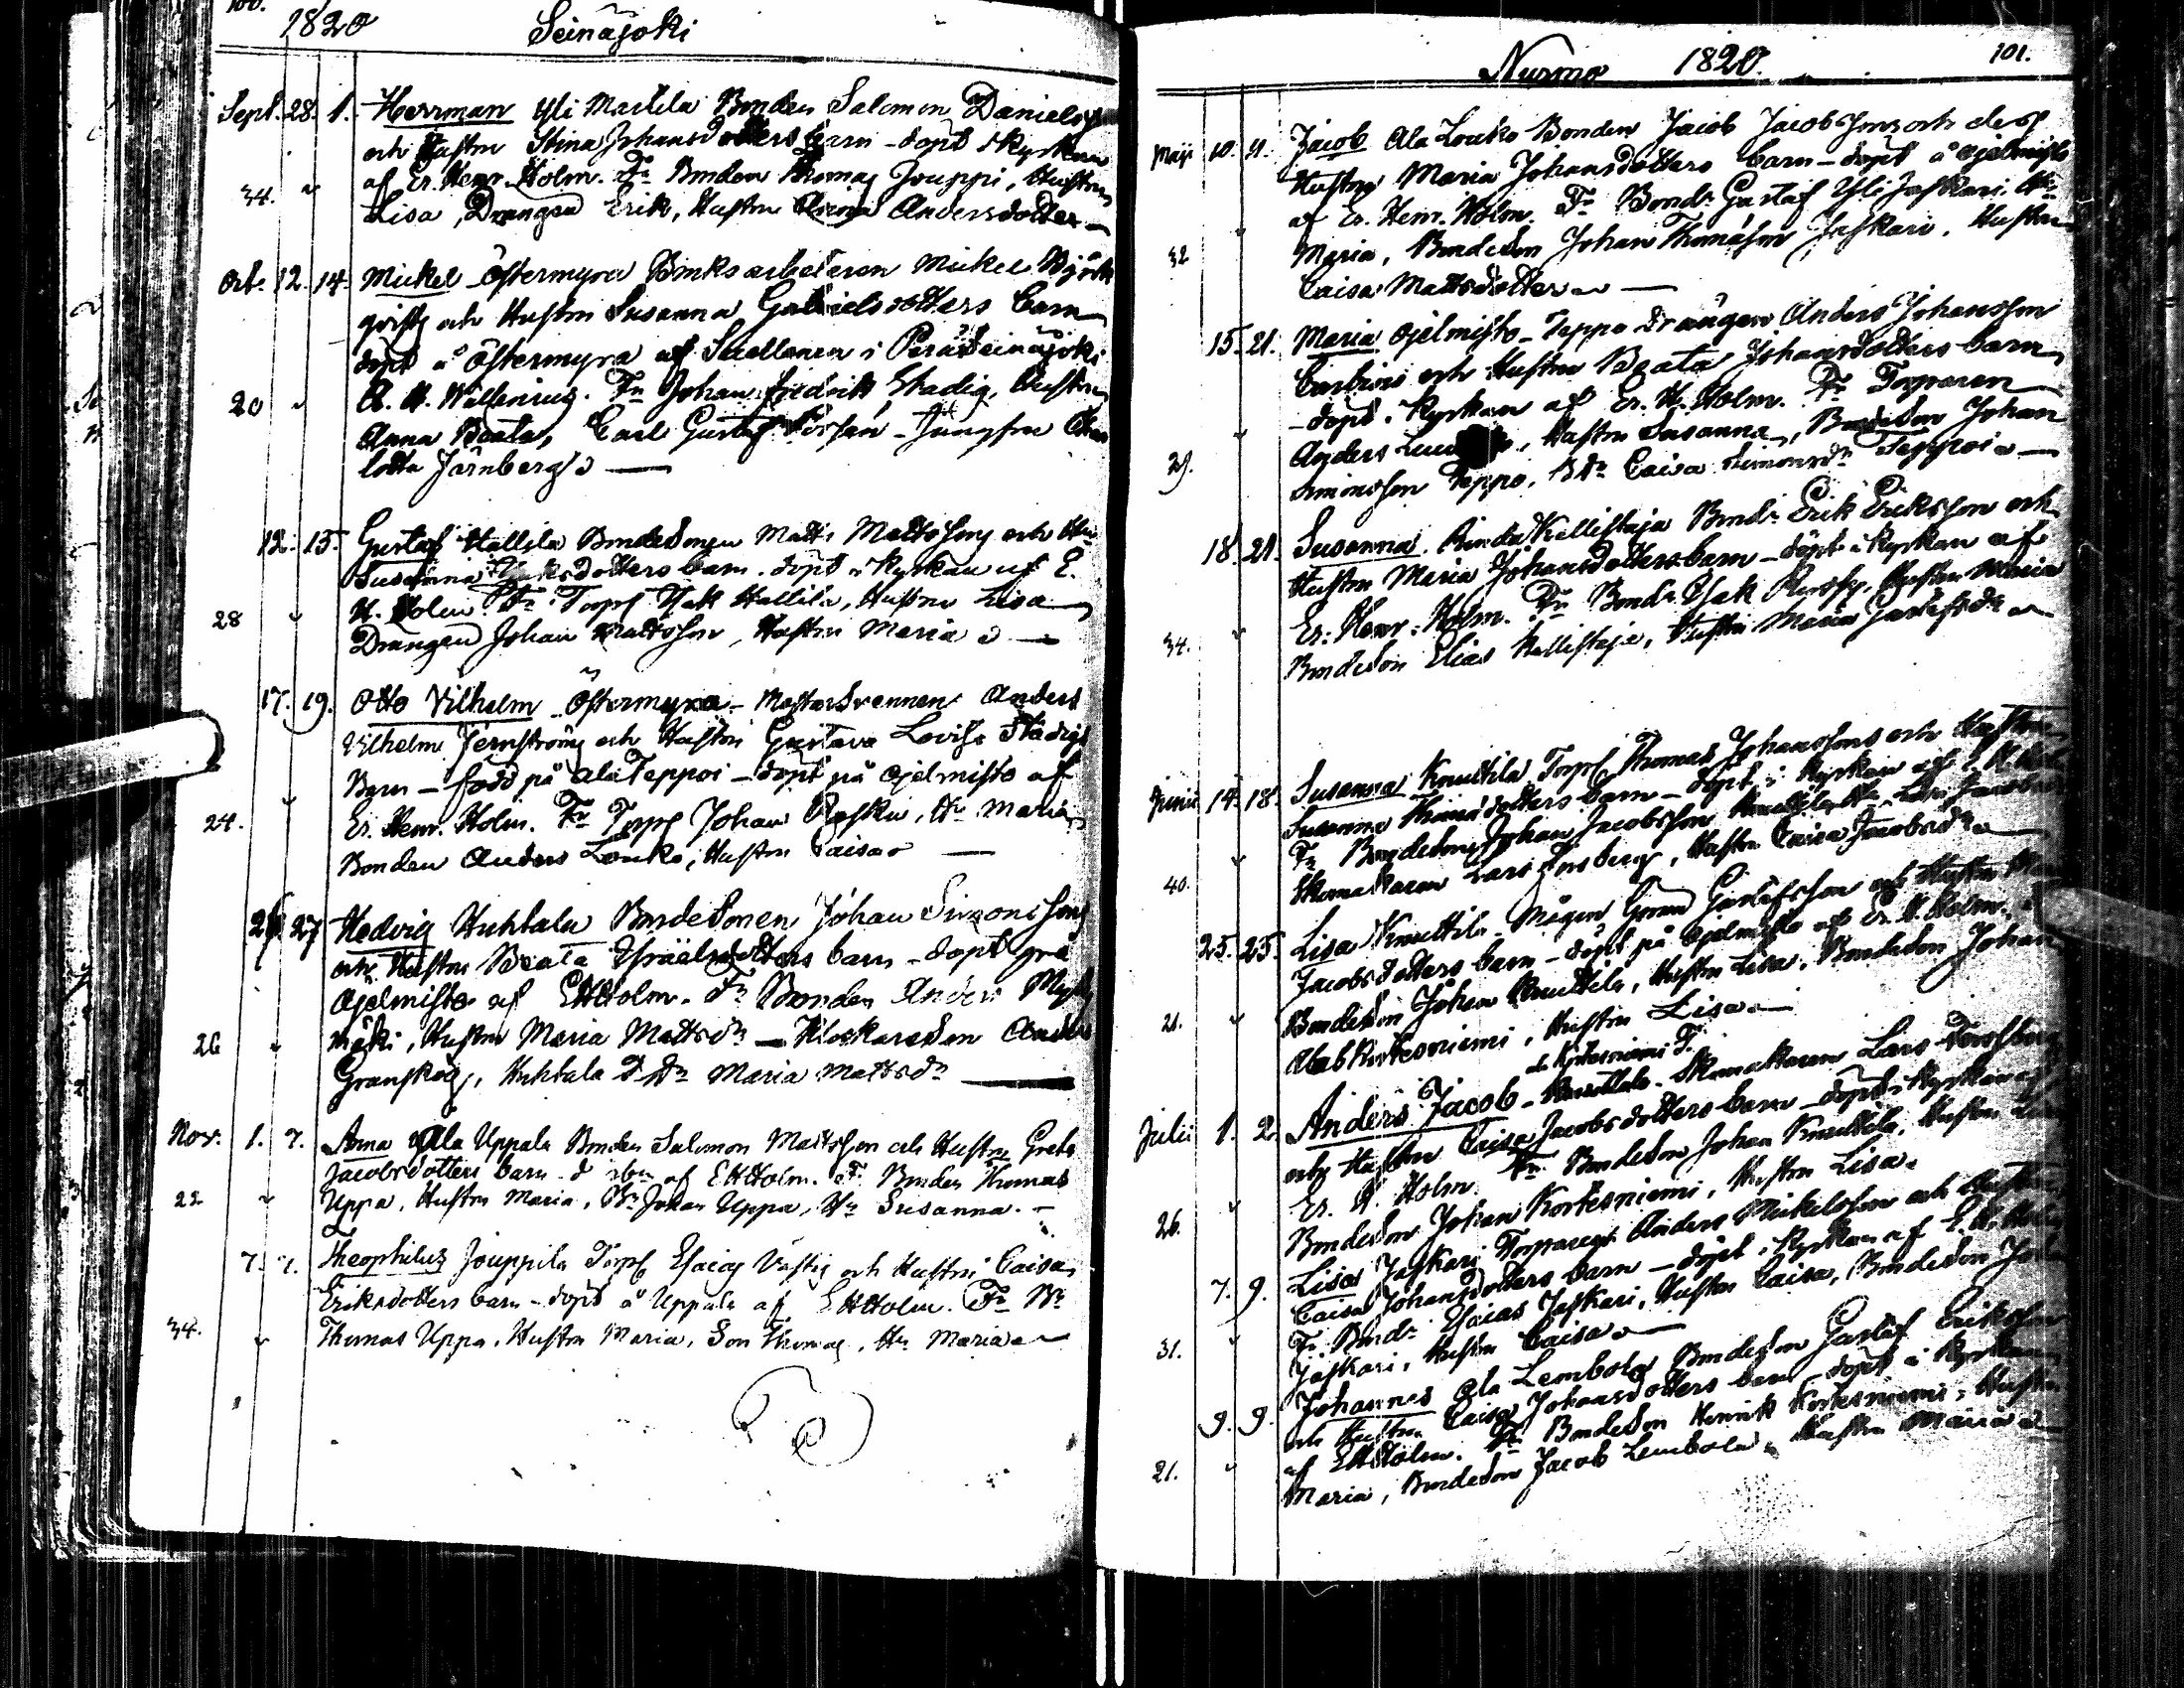 100.
1820 Seinäjoki
Sept. 28. 1. Herrman Yli Marttila Bonden Salomon Danielss
och Hustru Stina Johansdotters barn - döpt i kyrkan
af Er. Henr. Holm. Fr Bonden Thomas Jouppi, Hustru
34. Lisa, Drängen Erik, Hustru Anna Andersdotter
Oct. 12. 14. Mickel Östermyra Bruksarbetaren Mickel Björk
qvists och Hustru Susanna Gabrielsdotters barn
döpt å Östermyra af i Peräseinäjoki
20 A. H. Wallenius. Fr Johan Fredrik Stadig, Hustru
Anna Beata, Carl Gustaf Jungfru Char
lotta Järnberg
12. 15. Gustaf Hallila Bondesonen Matts Mattssons och Hu
Susanna barn. döpt i kyrkan af E.
28 H. Holm. Fr Torp Isak Hallila, Hustru Lisa
Drängen Johan Mattsson, Hustru Maria
17. 19. Otto Vilhelm Östermyra - Anders
Vilhelm Jernström och Hustru Gustava Lovisa Stadigs
Barn - född på Ala Teppoi - döpt på Ojelmisto af
24. Er. Henr. Holm. Fr Torp Johan, Hu Maria
Bonden Anders Louko, Hustru Caisa
27 Hedvig Huhtala Bondesonen Johan Simonssons
och Hustru Beata Israelsdotters barn - döpt på
Ojelmisto af E H Holm. Fr Bonden Anders Mylly
26 mäki, Hustru Maria Mattsdr - Klockareson Anders
Granskog, Huhtala Ddr Maria Mattsdr
Nov. 1. 7. Anna Ala Uppala Bonden Salomon Mattsson och Hustru Greta
Jacobsdotters barn d af E H Holm. F. Bonden Thomas
22 Uppa, Hustru Maria, Bn Johan Uppa, Hu Susanna.
7. 7. Theophilus Jouppila Torp Esaias Västig och Hustru Caisa
Eriksdotters barn - döpt å Uppala af E H Holm. Fr Bn
34. Thomas Uppa, Hustru Maria, Son Thomas, Hu Maria
Nurmo 1820. 101.
Maji 10. 11. Jacob Ala Louko Bonden Jacob Jacobssons och dess
Hustru Maria Johansdotters barn - döpt å Ojelmisto
af Er. Henr. Holm. Fr Bondn Gustaf Yli Jaskari, Hu
32 Maria, Bondeson Johan Thomasson Jaskari, Hustru
Caisa Mattsdotter
15. 21. Maria Ojelmisto - Teppo Drängen Anders Johansson
och Hustru Beata Johansdotters barn
- döpt i kyrkan af Er. H. Holm. Fr Torparen
Anders, Hustru Susanna, Bondeson Johan
29. Simonsson Teppo, Bdr Caisa Simonsdr Teppoi
18. 21. Susanna Rinda Kallistaja Bondn Erik Eriksson och
Hustru Maria Johansdotters barn - döpt i kyrkan af
Er. Henr. Holm. Fr Bondn Isak, Hustru Maria
34. Bondeson Elias Kallistaja, Hustru Maria Gustafsdr
Junii 14. 18. Susanna Knuuttila Torp Thomas Johanssons och Hustru
Susanna Thomasdotters barn - döpt i kyrkan af E. H. Hol
Fr Bondeson Johan Jacobsson
40. Skomakaren Lars Forsberg, Hustru Caisa Jacobsdr
25. 25. Lisa Knuuttila - Mågen Göran Gustafsson och Hustru
Jacobsdotters barn - döpt på Ojelmisto af Er. H. Holm.
21. Bondeson Johan Knuuttila, Hustru Lisa, Bondeson Johan
Kortesniemi, Hustru Lisa
Kortesniemi T.
Julii 1. 2. Anders Jacob - Skomakaren Lars Forsberg
och Hustru Caisa Jacobsdotters barn - döpt i kyrkan af
Er. H. Holm. Fr Bondeson Johan Knuuttila, Hustru
26. Bondeson Johan Kortesniemi, Hustru Lisa.
7. 9. Lisa Jaskari Torparen Anders Mickelsson och Hustru
Caisa Johansdotters barn - döpt i kyrkan af E. H. Holm
Fr. Bondn Esaias Jaskari, Hustru Caisa, Bondeson Joh
31. Jaskari, Hustru Caisa
9. 9. Johannes Ala Lembola Bondeson Gustaf Eriksson
och Hustru Caisa Johansdotters barn döpt i kyrkan
af E H Holm. Fr Bondeson Henrik Kortesniemi, Hustru
21. Maria, Bondeson Jacob Lembola, Hustru Maria